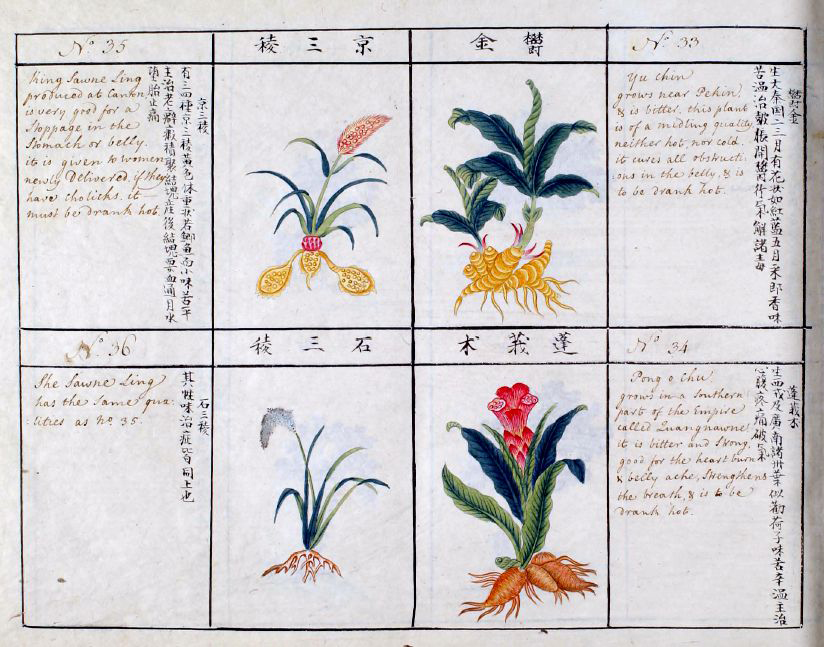 No. 33
欝金
生大秦国二三月有花状如紅藍五月采即香味
苦温治蠱脹開欝行气解諸毒
Yu chin
grows near Pekin,
& is bitter, this plant
is of a midling quality
neither hot, nor cold.
it cures all obstructi-
ons in the belly, & is
to be drank hot.
欝金
No. 34
蓬莪术
生西戎及廣南諸州葉似蘘荷子味苦辛温主治
心腹疼痛破气
Pong o Chu
grows in a Southern
part of the Empire
called Quangnawne
it is bitter and Strong.
good for the heart burn
& belly ache, Strengthens
the breath, & is to be
drank hot.
蓬莪术
京三稜
No. 35
京三稜
有三四種京三稜黃色体重状若鯽魚而小味苦平
主治老癖癥瘕積聚結塊産後結塊惡血通月水
墮胎止痛
King Sawne Ling
produced at Canton
is very good for a
Stoppage in the
Stomach or belly.
it is given to women
newly Delivered, if they
have cholicks. it
must be drank hot.
石三稜
No. 36
石三稜
其性味治症皆同上也
She Sawne Ling
has the Same qua-
lities as No. 35.